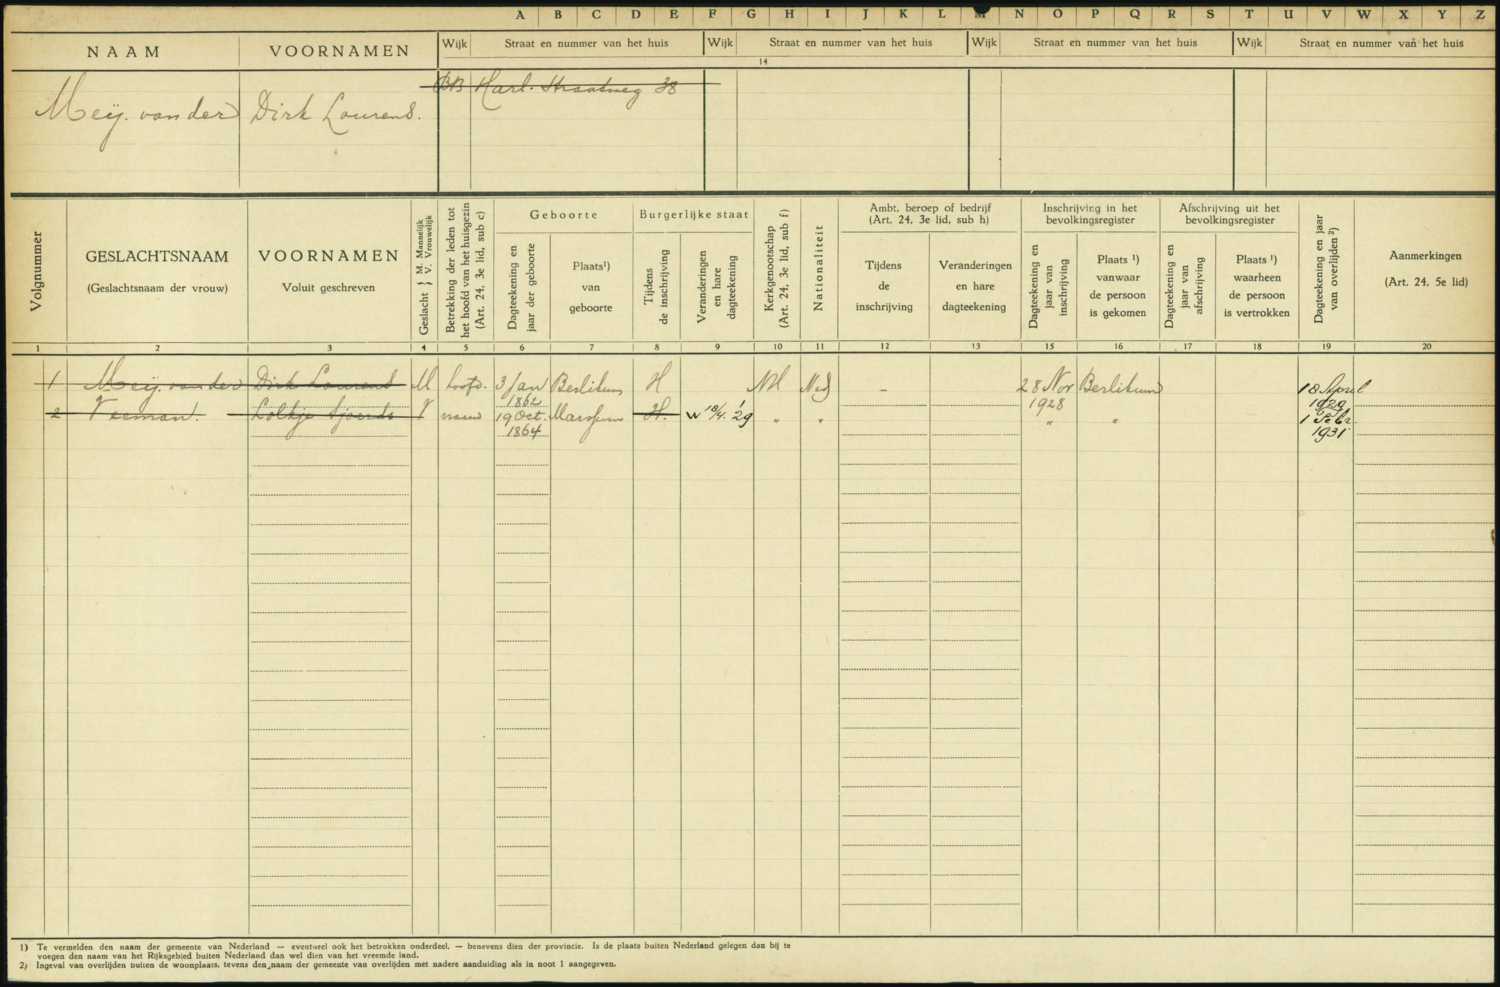 A B C D E F G H I J K L M N O P Q R S T U V W X Y Z
NAAM VOORNAMEN Wijk Straat en nummer van het huis Wijk Straat en nummer van het huis Wijk Straat en nummer van het huis Wijk Straat en nummer van het huis
14
BB Harl. Straatweg 38
Meij. van der Dirk Lourens.
Volgnummer
GESLACHTSNAAM
(Geslachtsnaam der vrouw)
VOORNAMEN
Voluit geschreven
Geslacht } M. Mannelijk V. Vrouwelijk
Betrekking der leden tot
het hoofd van het huisgezin
(Art. 24, 3e lid, sub c)
Geboorte
Dagteekening en
jaar der geboorte
Plaats¹)
van
geboorte
Burgerlijke staat
Tijdens
de inschrijving
Veranderingen
en hare
dagteekening
Kerkgenootschap
(Art. 24, 3e lid, sub f)
Nationaliteit
Ambt, beroep of bedrijf
(Art. 24, 3e lid, sub h)
Tijdens
de
inschrijving
Veranderingen
en hare
dagteekening
Inschrijving in het
bevolkingsregister
Dagteekening en
jaar van
inschrijving
Plaats ¹)
vanwaar
de persoon
is gekomen
Afschrijving uit het
bevolkingsregister
Dagteekening en
jaar van
afschrijving
Plaats ¹)
waarheen
de persoon
is vertrokken
Dagteekening en jaar
van overlijden ²)
Aanmerkingen
(Art. 24, 5e lid)
1 2 3 4 5 6 7 8 9 10 11 12 13 15 16 17 18 19 20
1 Meij. van der Dirk Lourens M hoofd. 3 Jan Berlikum H NH Ned - 28 Nov Berlikum 18 April
1862 1928 1929
2 Veeman Loltje Sjoerds V vrouw 19 Oct. Marssum H. W 18/4. '29 " " " " 1 Febr.
1864 1931
1) Te vermelden den naam der gemeente van Nederland — eventueel ook het betrokken onderdeel, — benevens dien der provincie. Is de plaats buiten Nederland gelegen dan bij te
voegen den naam van het Rijksgebied buiten Nederland dan wel dien van het vreemde land.
2) Ingeval van overlijden buiten de woonplaats, tevens den naam der gemeente van overlijden met nadere aanduiding als in noot 1 aangegeven.